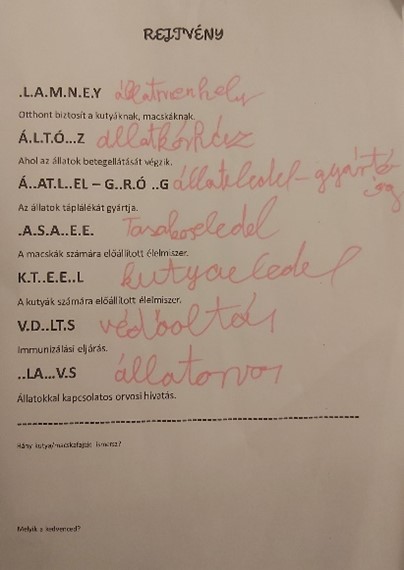 REJTVÉNY
.L.A.M.N.E.Y állatmenhely
Otthont biztosít a kutyáknak, macskáknak.
Á.L.T.Ó...Z állatkórház
Ahol az állatok betegellátását végzik.
Á..AT.L..EL – G..R.Ó ..G állateledel-gyártó
Az állatok táplálékát gyártja.
.A.S.A..E.E.
A macskák számára előállított élelmiszer.
K.T..E.E..L kutyaeledel
A kutyák számára előállított élelmiszer.
V.D..LT.S védőoltás
Immunizálási eljárás.
..LA...V.S állatorvos
Állatokkal kapcsolatos orvosi hivatás.
Hány kutya/macskafajtát ismersz?
Melyik a kedvenced?